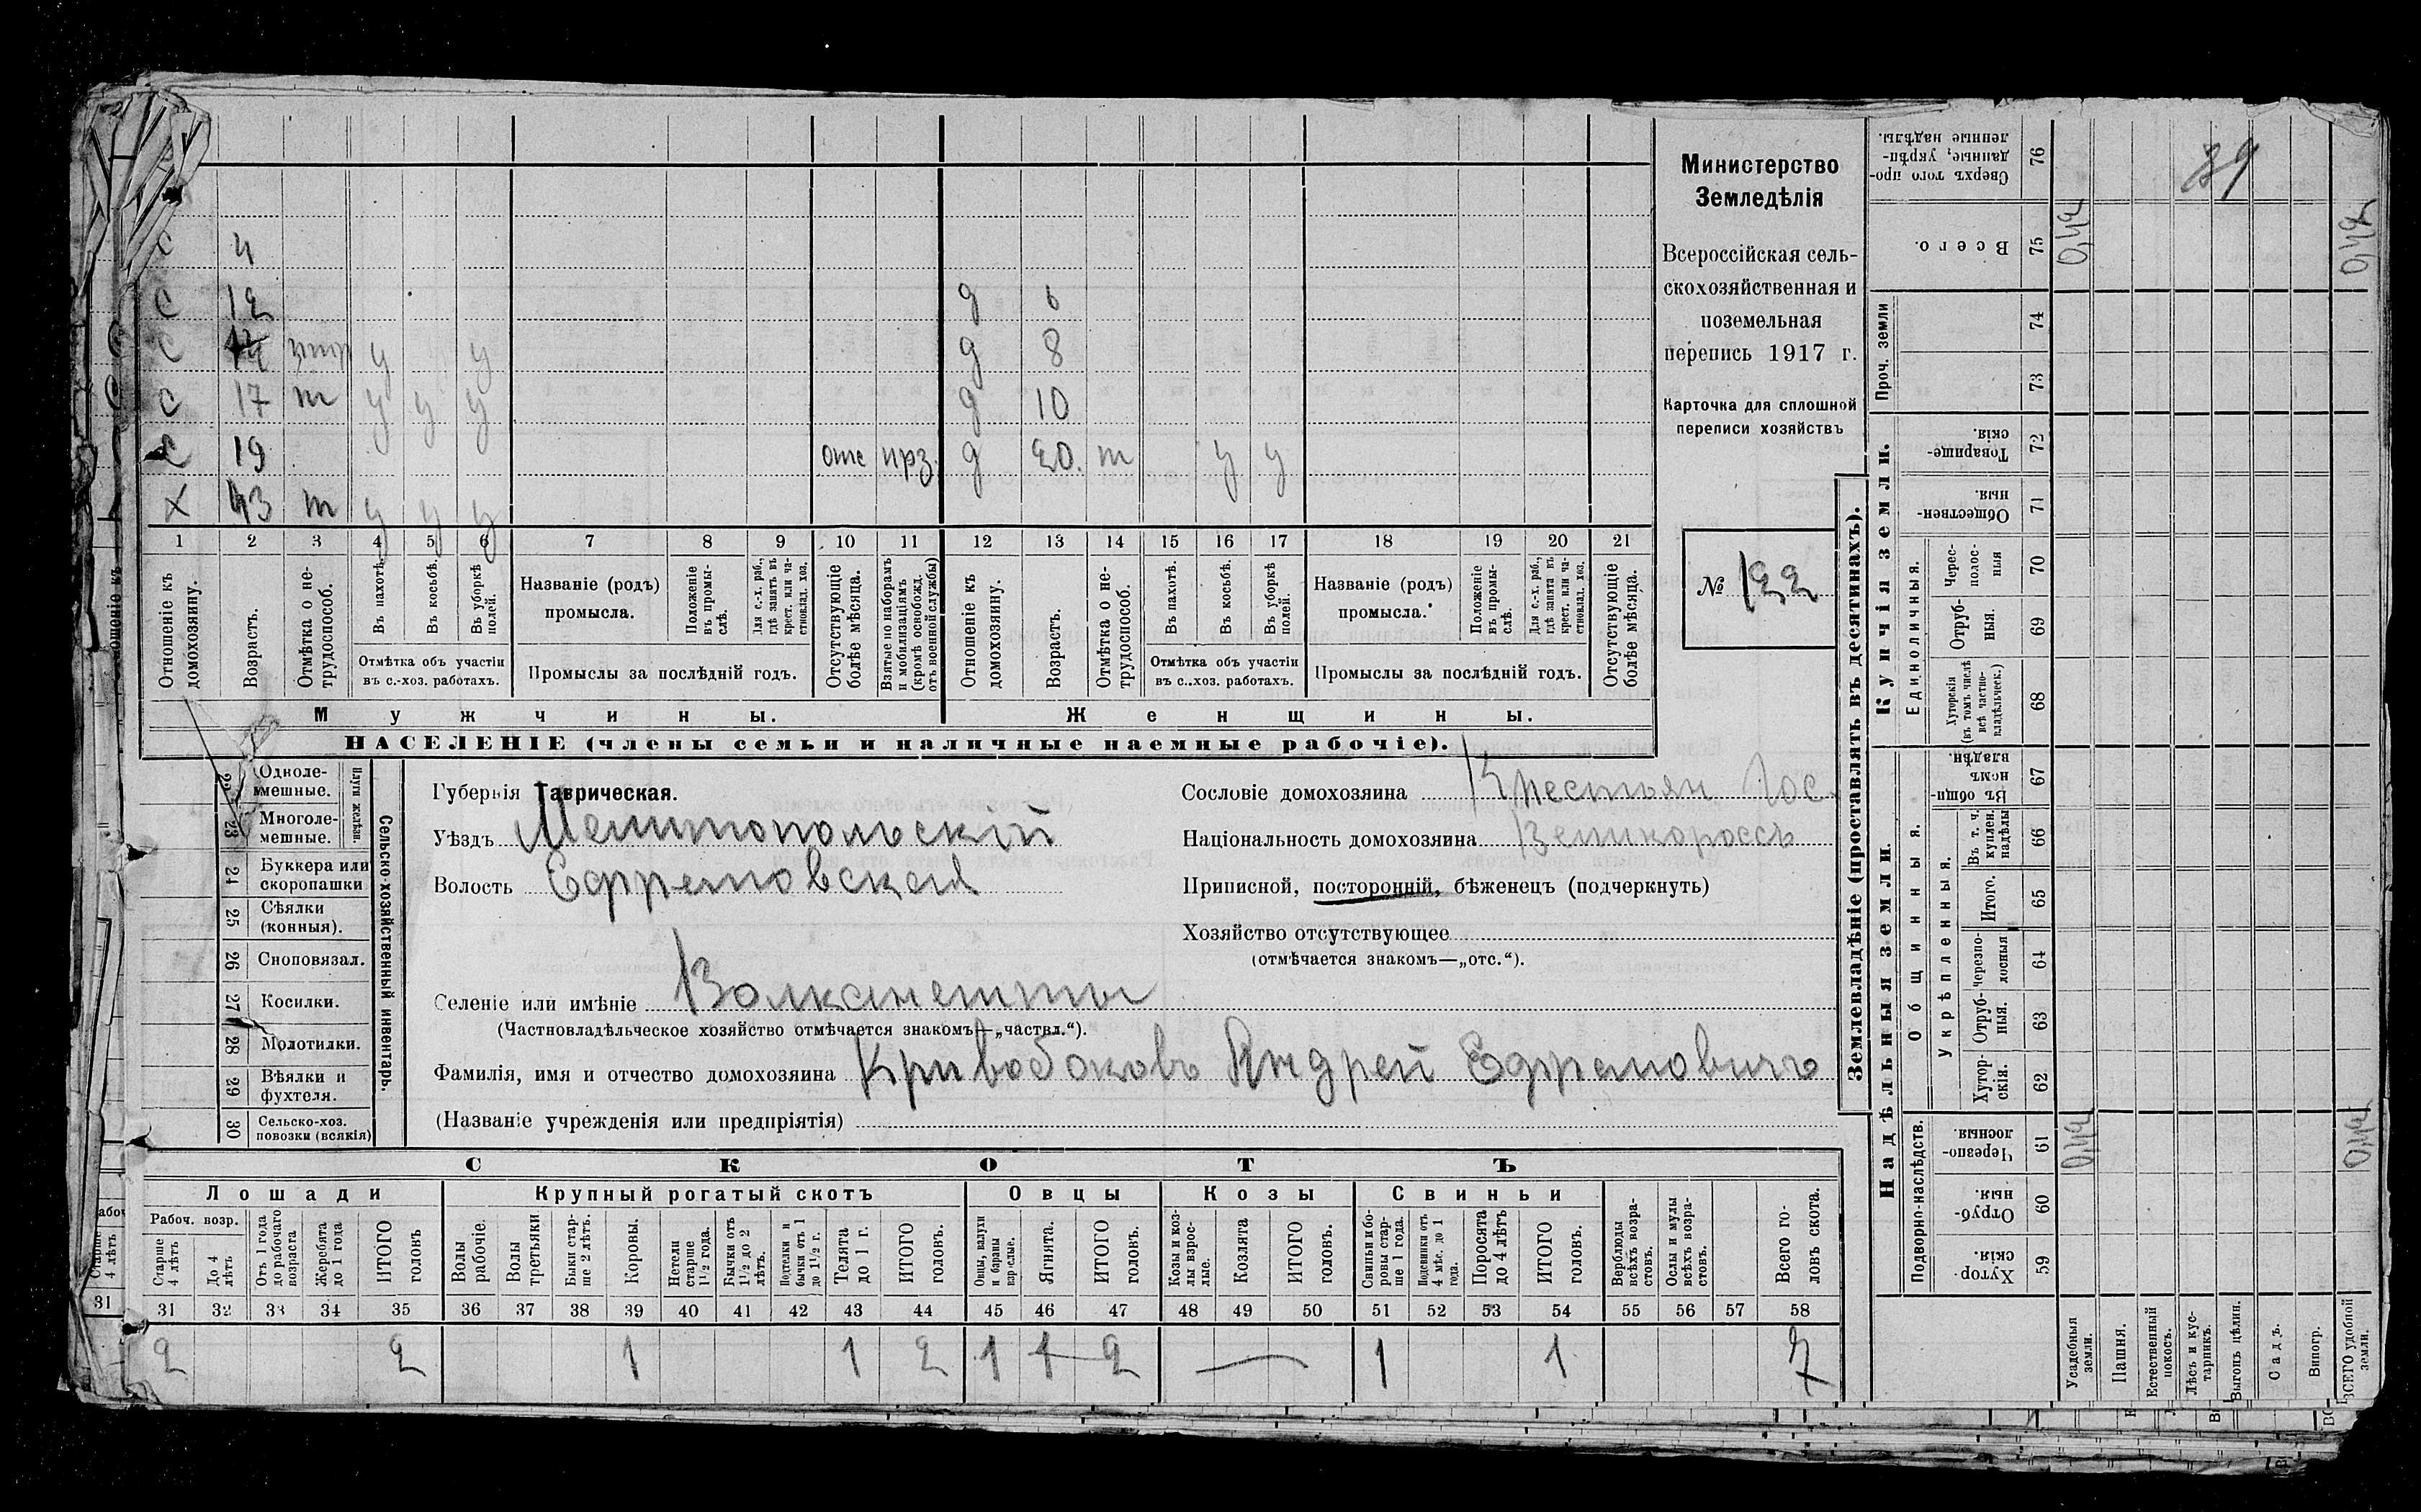 Министерство
Земледѣлія
Всероссійская сель-
скохозяйственная и
поземельная
перепись 1917 г.
Карточка для сплошной
переписи хозяйствъ
№ 122
с 4
с 12 д 6
с у у д 8
с 17 т у у у д 10
с 19 отс прз. д 20 т у у
х 43 т у у у
1 2 3 4 5 6 7 8 9 10 11 12 13 14 15 16 17 18 19 20 21
Отношеніе къ домохозяину.
Возрастъ.
Отмѣтка о не-трудоспособ.
Въ пахотѣ.
Въ косьбѣ.
Въ уборкѣ полей.
Отмѣтка объ участіи
въ с.-хоз. работахъ.
Названіе (родъ)
промысла.
Положеніе въ промы-слѣ.
Для с.-х. раб., гдѣ занятъ въ крест. или ча-стновлад. хоз.
Промыслы за послѣдній годъ.
Отсутствующіе болѣе мѣсяца.
Взятые по наборамъ и мобилизаціямъ (кромѣ освобожд. отъ военной службы)
Отношеніе къ домохозяину.
Возрастъ.
Отмѣтка о не-трудоспособ.
Въ пахотѣ.
Въ косьбѣ.
Въ уборкѣ полей.
Отмѣтка объ участіи
въ с..хоз. работахъ.
Названіе (родъ)
промысла.
Положеніе въ промы-слѣ.
Для с.-х. раб., гдѣ занята въ крест. или ча-стновлад. хоз.
Промыслы за послѣдній годъ.
Отсутствующіе болѣе мѣсяца.
Мужчины. Женщины.
НАСЕЛЕНІЕ (члены семьи и наличные наемные рабочіе).
Плуги желѣзн.
Одноле-
мешные.
23 Многоле-
мешные.
24 Буккера или
скоропашки
25 Сѣялки
(конныя).
26 Сноповязал.
27 Косилки.
28 Молотилки.
29 Вѣялки и
фухтеля.
30 Сельско-хоз.
повозки (всякія)
Сельско-хозяйственный инвентарь.
Губернія Таврическая.
Уѣздъ Мелитопольскій
Волость Ефремовская
Селеніе или имѣніе Волканешты
(Частновладѣльческое хозяйство отмѣчается знакомъ—„частвл.“).
Фамилія, имя и отчество домохозяина Кривобоковъ Андрей Ефремовичъ
(Названіе учрежденія или предпріятія)
Сословіе домохозяина Крестьян Гос.
Національность домохозяина Великороссъ
Приписной, посторонній, бѣженецъ (подчеркнуть)
Хозяйство отсутствующее
(отмѣчается знакомъ—„отс.“).
СКОТЪ
Лошади Крупный рогатый скотъ Овцы Козы Свиньи
Рабоч. возр.
Старше 4 лѣтъ
До 4 лѣтъ
Отъ 1 года до рабочаго возраста
Жеребята до 1 года
ИТОГО головъ
Волы рабочіе.
Волы третьяки
Быки стар-ше 2 лѣтъ.
Коровы.
Нетели старше 1 1/2 года.
Бычки отъ 1 1/2 до 2 лѣтъ.
Подтелки и бычки отъ 1 до 1 1/2 г.
Телята до 1 г.
ИТОГО головъ.
Овцы, валухи и бараны взрослые.
Ягнята.
ИТОГО головъ.
Козы и коз-лы взрос-лые.
Козлята
ИТОГО головъ.
Свиньи и бо-ровы стар-ше 1 года.
Подсвинки отъ 4 мѣс. до 1 года.
Поросята до 4 лѣтъ
ИТОГО головъ.
Верблюды всѣхъ возра-стовъ.
Ослы и мулы всѣхъ возра-стовъ.
Всего го-ловъ скота.
31 32 33 34 35 36 37 38 39 40 41 42 43 44 45 46 47 48 49 50 51 52 53 54 55 56 57 58
2 2 1 1 2 1 1 2 — 1 1 7
Землевладѣніе (проставлять въ десятинахъ).
Купчія земли.
Надѣльныя земли.
Проч. земли
Единоличныя.
Общинныя.
Укрѣпленныя.
Подворно-наслѣдств.
Сверхъ того про-
данные, укрѣп-
ленные надѣлы. 76
Всего. 75
74
73
Товарище-
скія. 72
Обществен-
ныя. 71
Черес-
полос-
ныя 70
Отруб-
ныя. 69
Хуторскія
(въ томъ числѣ
всѣ частно-
владѣльческ.) 68
Въ общи-
номъ
владѣн. 67
Въ т. ч.
куплен.
надѣлы 66
Итого. 65
Черезпо-
лосныя 64
Отруб-
ныя. 63
Хутор-
скія. 62
Черезпо-
лосныя. 61
Отруб-
ныя. 60
Хутор-
скія. 59
Усадебныя земли.
Пашня.
Естественный покосъ.
Лѣсъ и кус-тарникъ.
Выгонъ цѣлин.
Садъ.
Виногр.
ВСЕГО удобной земли.
39